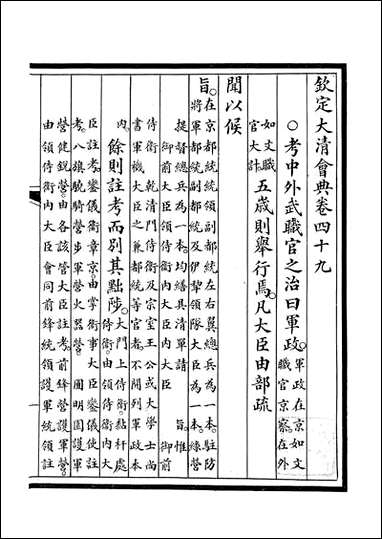 欽定大清會典卷四十九
○考中外武職官之治曰軍政。軍政在京如文
職官京察。在外
如文職
官大計。五歲則舉行焉。凡大臣由部疏
聞以候
旨。在京都統統領副都統左右翼總兵為一本。駐防
將軍都統副都統及伊犂領隊大臣為一本。綠營
提督總兵為一本。均繕具清單請 旨。惟
御前大臣領侍衛內大臣內大臣 御前
侍衛 乾清門侍衛及宗室王公或大學士尚
書軍機大臣之兼都統等官者。不開列軍政本
內。餘則註考而別其黜陟。大門上侍衛。黏杆處
侍衛。由領侍衛內大
臣註考。鑾儀衛章京。由掌衛事大臣鑾儀使註
考。八旗驍騎營步軍營火器營。圓明園護軍
營健銳營。由各該管大臣註考。前鋒營護軍營。
由領侍衛內大臣會同前鋒統領護軍統領註